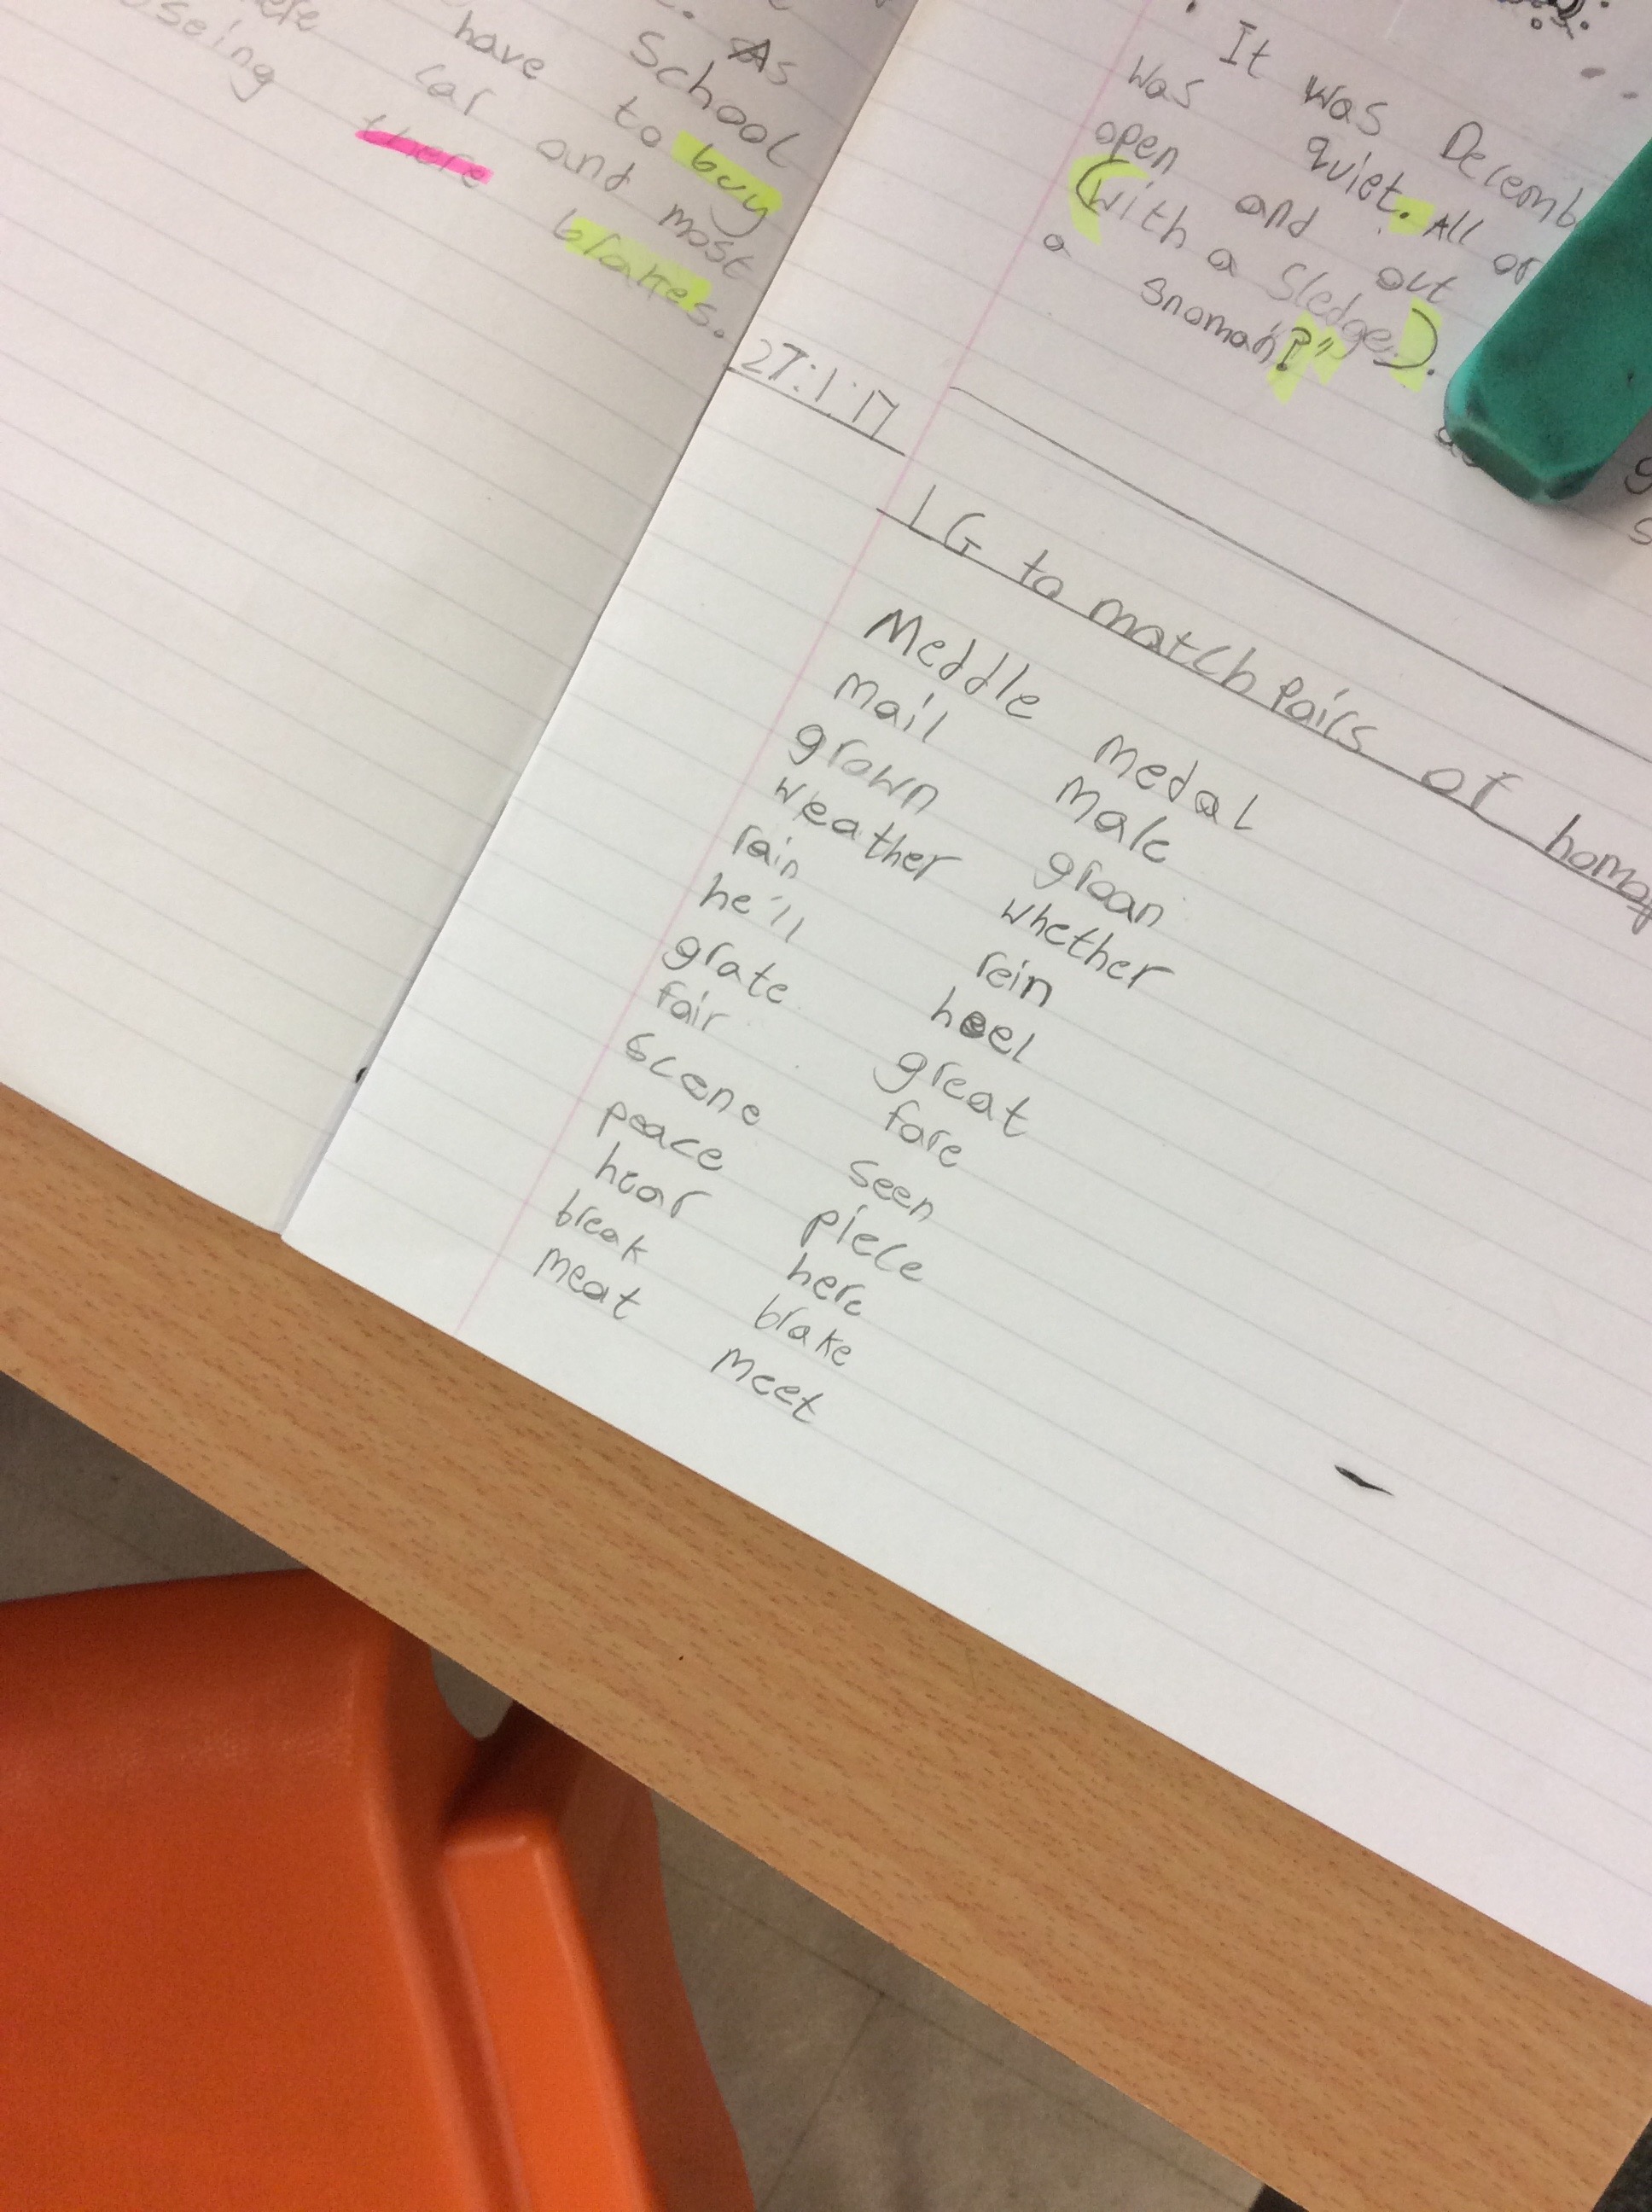 As
School
have to buy
car and most
seing there blames.
It was Decemb
was quiet. All or
open and out
(with a Sledge).
a snoman?"
27:1:17
LG to match Pairs of homop
Meddle medal
mail male
grown groan
weather whether
rain rein
he'll heel
grate great
fair fare
scene seen
peace piece
hear here
break brake
meat meet